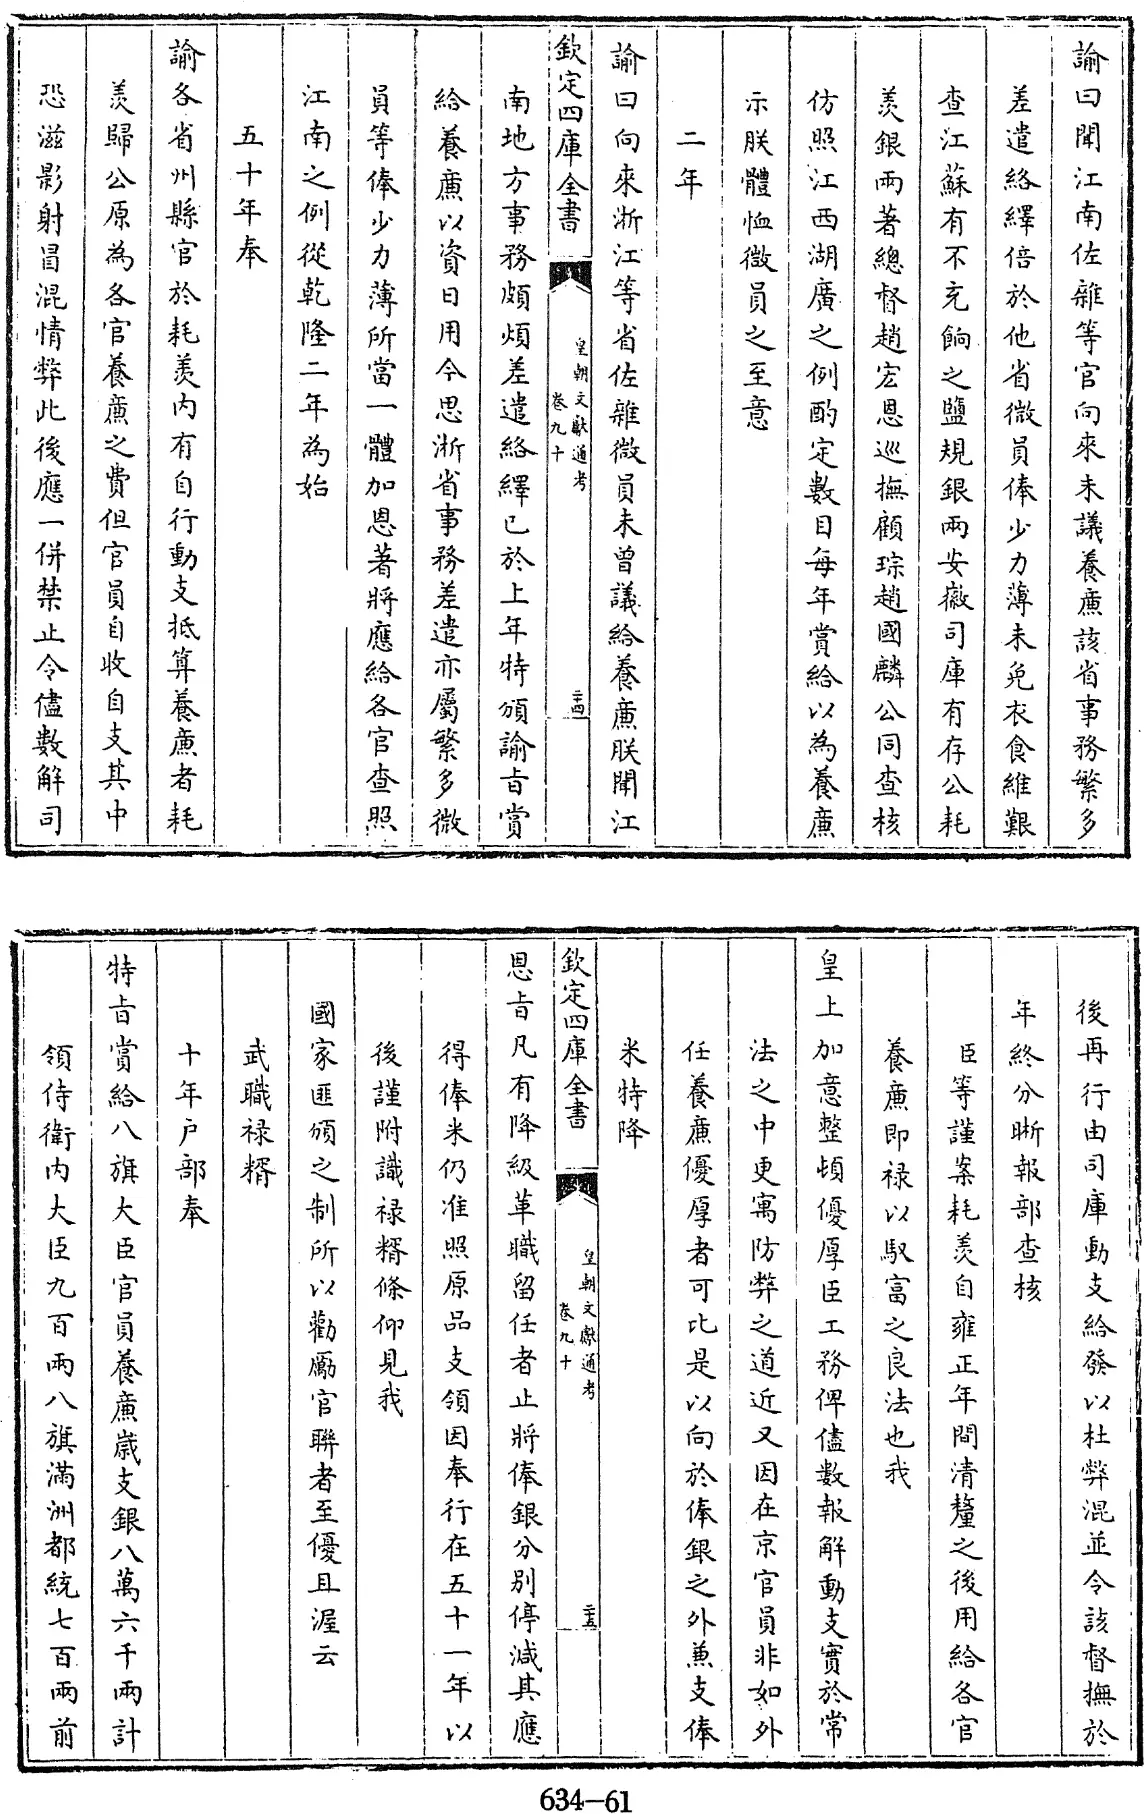 諭曰聞江南佐雜等官向來未議養廉該省事務繁多
差遣絡繹倍於他省微員俸少力薄未免衣食維艱
查江蘇有不充餉之鹽規銀兩安徽司庫有存公耗
羨銀兩著總督趙宏恩巡撫顧琮趙國麟公同查核
仿照江西湖廣之例酌定數目每年賞給以為養廉
示朕體恤微員之至意
二年
諭曰向來浙江等省佐雜微員未曾議給養廉朕聞江
欽定四庫全書
皇朝文獻通考
卷九十
二十四
南地方事務頗煩差遣絡繹已於上年特頒諭旨賞
給養廉以資日用今思浙省事務差遣亦屬繁多微
員等俸少力薄所當一體加恩著將應給各官查照
江南之例從乾隆二年為始
五十年奉
諭各省州縣官於耗羨內有自行動支抵算養廉者耗
羨歸公原為各官養廉之費但官員自收自支其中
恐滋影射冒混情弊此後應一併禁止令儘數解司
後再行由司庫動支給發以杜弊混並令該督撫於
年終分晰報部查核
臣等謹案耗羨自雍正年間清釐之後用給各官
養廉即祿以馭富之良法也我
皇上加意整頓優厚臣工務俾儘數報解動支實於常
法之中更寓防弊之道近又因在京官員非如外
任養廉優厚者可比是以向於俸銀之外兼支俸
米特降
欽定四庫全書
皇朝文獻通考
卷九十
二十五
恩旨凡有降級革職留任者止將俸銀分別停減其應
得俸米仍准照原品支領因奉行在五十一年以
後謹附識祿糈條仰見我
國家匪頒之制所以勸勵官聯者至優且渥云
武職祿糈
十年戶部奉
特旨賞給八旗大臣官員養廉歲支銀八萬六千兩計
領侍衛內大臣九百兩八旗滿洲都統七百兩前
634-61